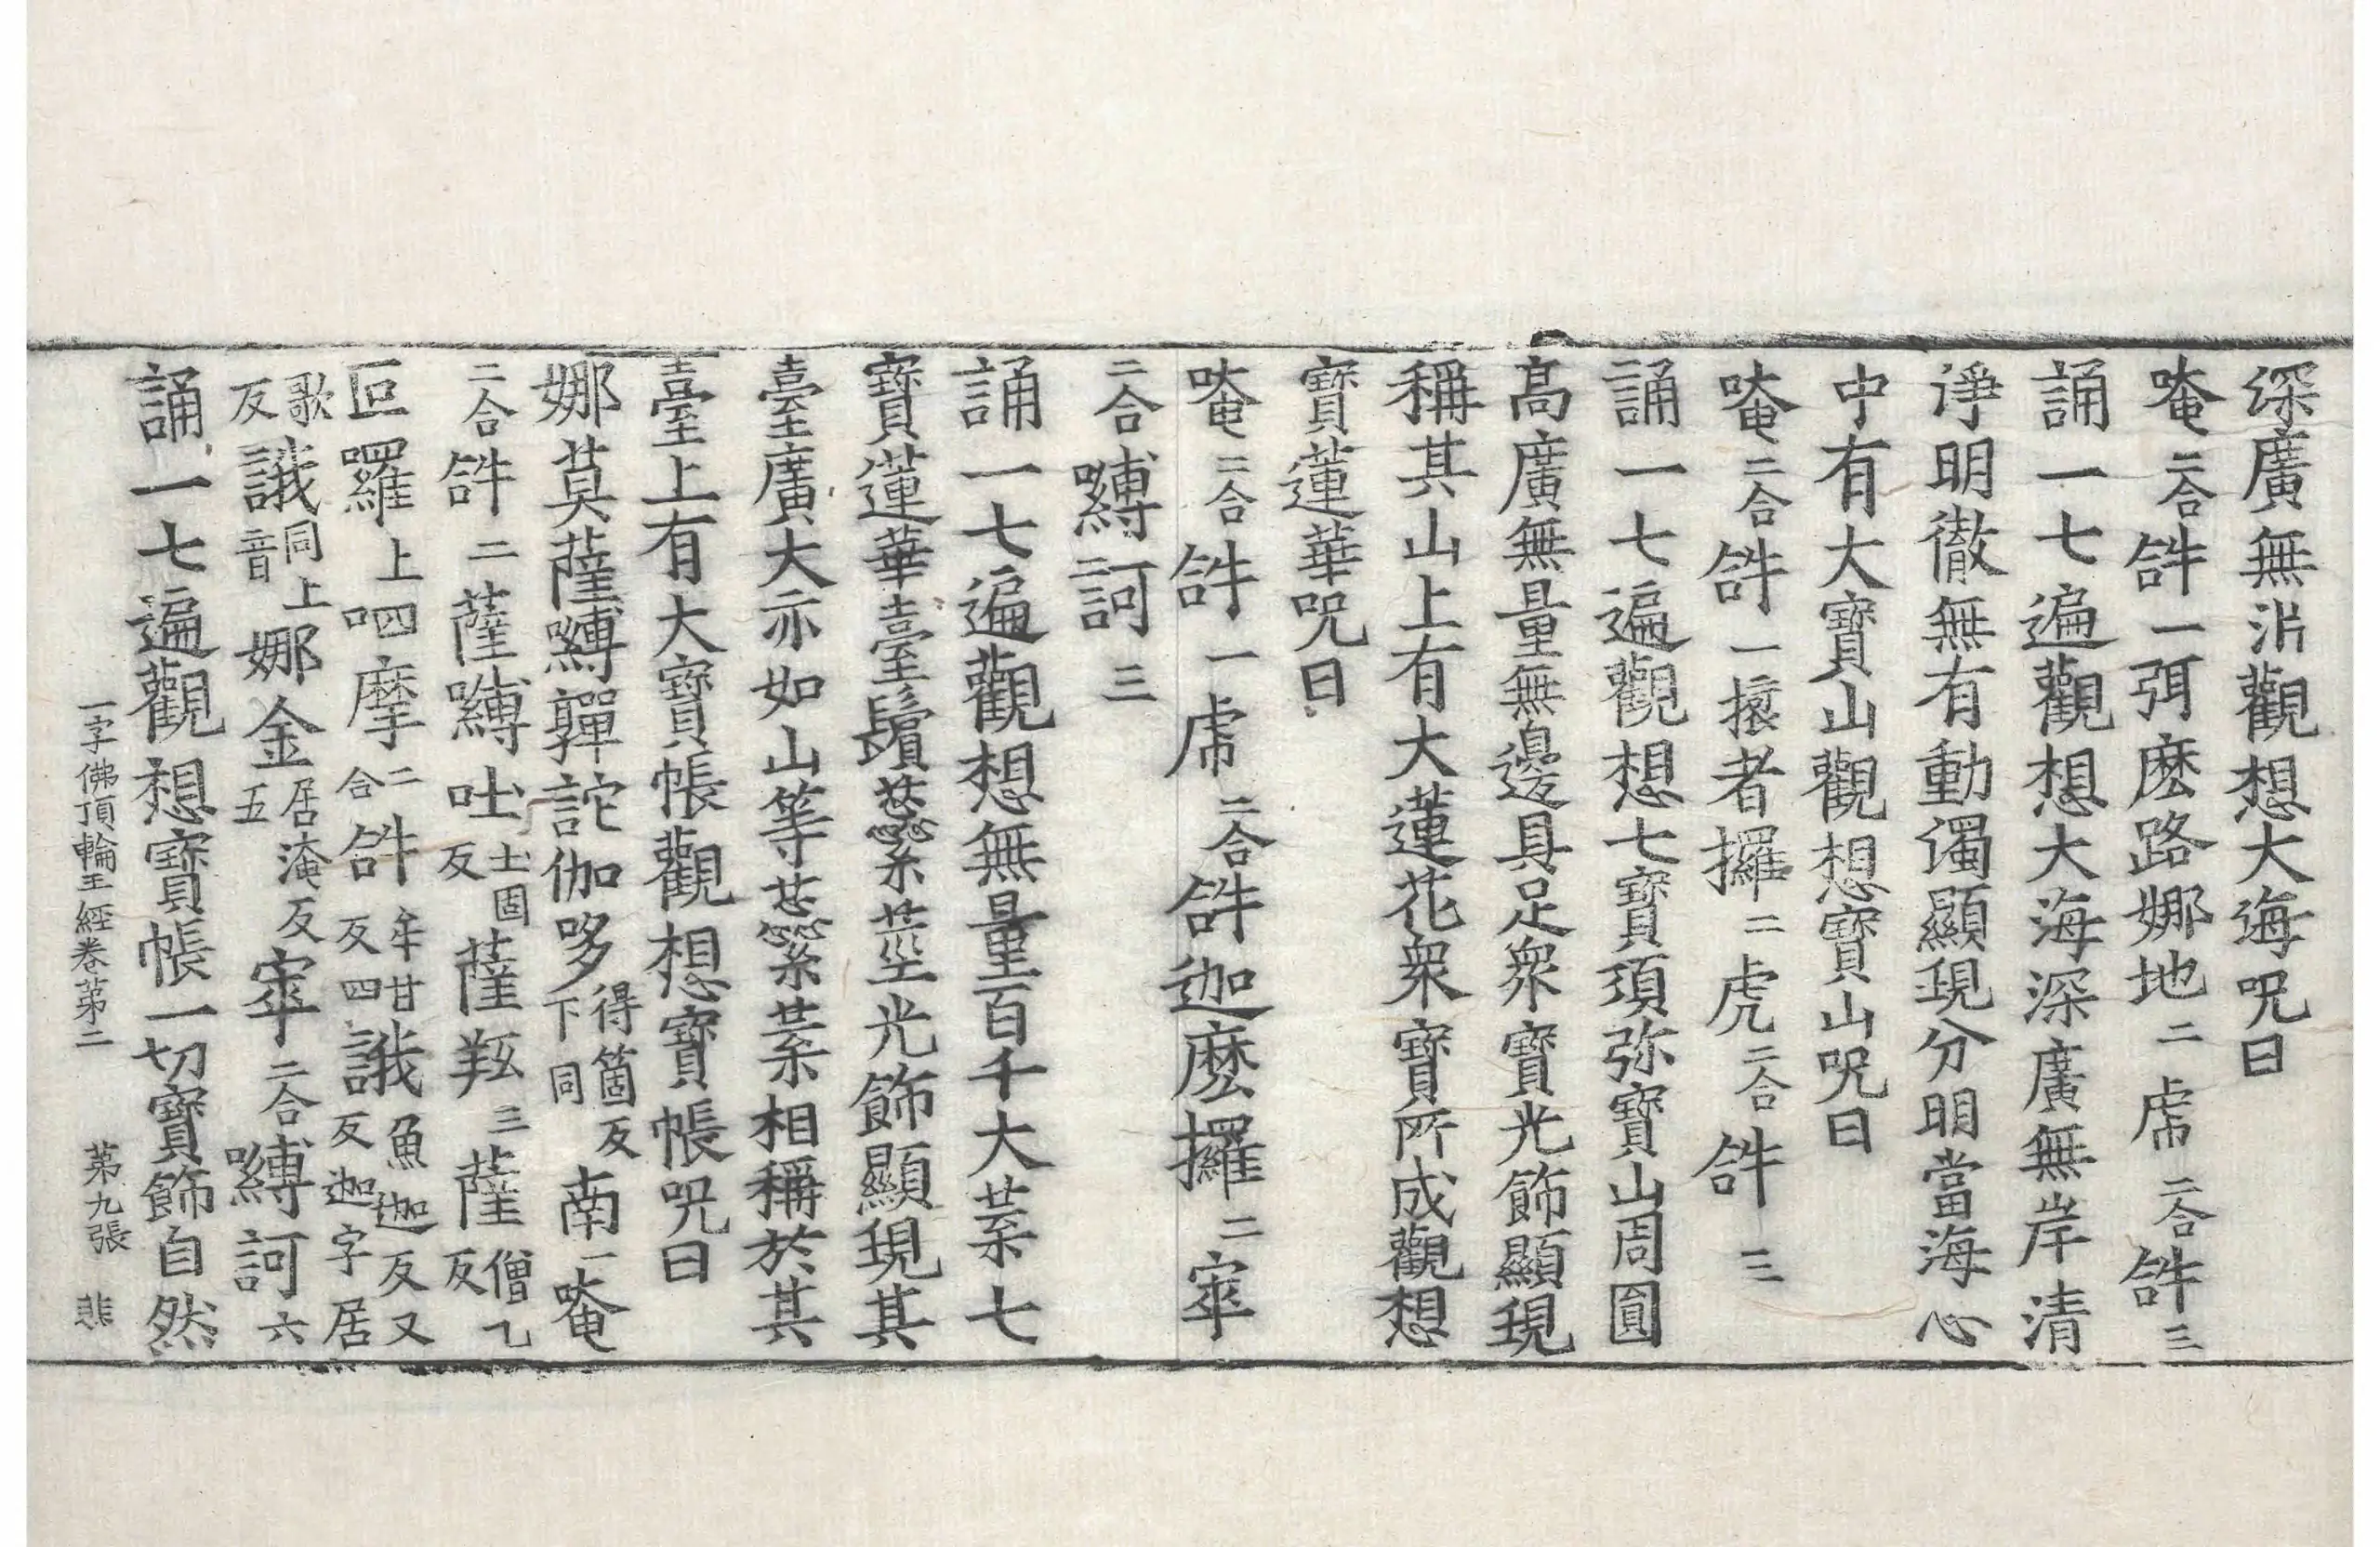 深廣無涯觀想大海呪曰
唵二合𤙖一弭麽路娜地二虎二合𤙖三
誦一七遍觀想大海深廣無岸清
淨明徹無有動濁顯現分明當海心
中有大寶山觀想寶山呪曰
唵二合𤙖一擡者攞二虎二合𤙖三
誦一七遍觀想七寶須弥寶山周圓
髙廣無量無邊具足衆寶光飾顯現
稱其山上有大蓮花衆寶所成觀想
寶蓮華呪曰
唵二合𤙖一虎二合𤙖迦麽攞二窣
二合嚩二訶三
誦一七遍觀想無量百千大葉七
寶蓮華臺鬚蘂莖光飾顯現其
臺廣大亦如山等蘂葉相稱於其
臺上有大寶帳觀想寶帳呪曰
娜莫薩嚩嚲詑伽哆得箇反下同南一唵
二合𤙖二薩嚩吐土固反薩羝三薩僧乙反
叵羅上呬摩二合𤙖牟甘反四誐魚迦反又迦字居
歌反誐同上音娜金居淹反五窣二合嚩訶六
誦一七遍觀想寶帳一切寶飾自然
一字佛頂輪王經卷苐二 苐九張 悲